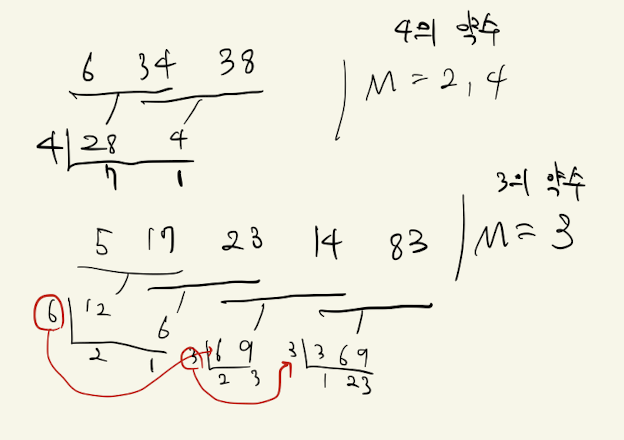 4의 약수
6 34 38
M = 2, 4
4 28 4
7 1
3의 약수
5 17 23 14 83
M = 3
6 12 6
2 1
3 6 9
2 3
3 3 6 9
1 2 3